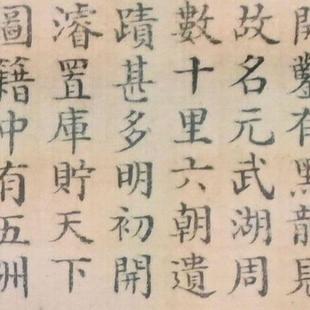 開鑿有黑龍見
故名元武湖周
數十里六朝遺
蹟甚多明初開
濬置庫貯天下
圖籍中有五洲